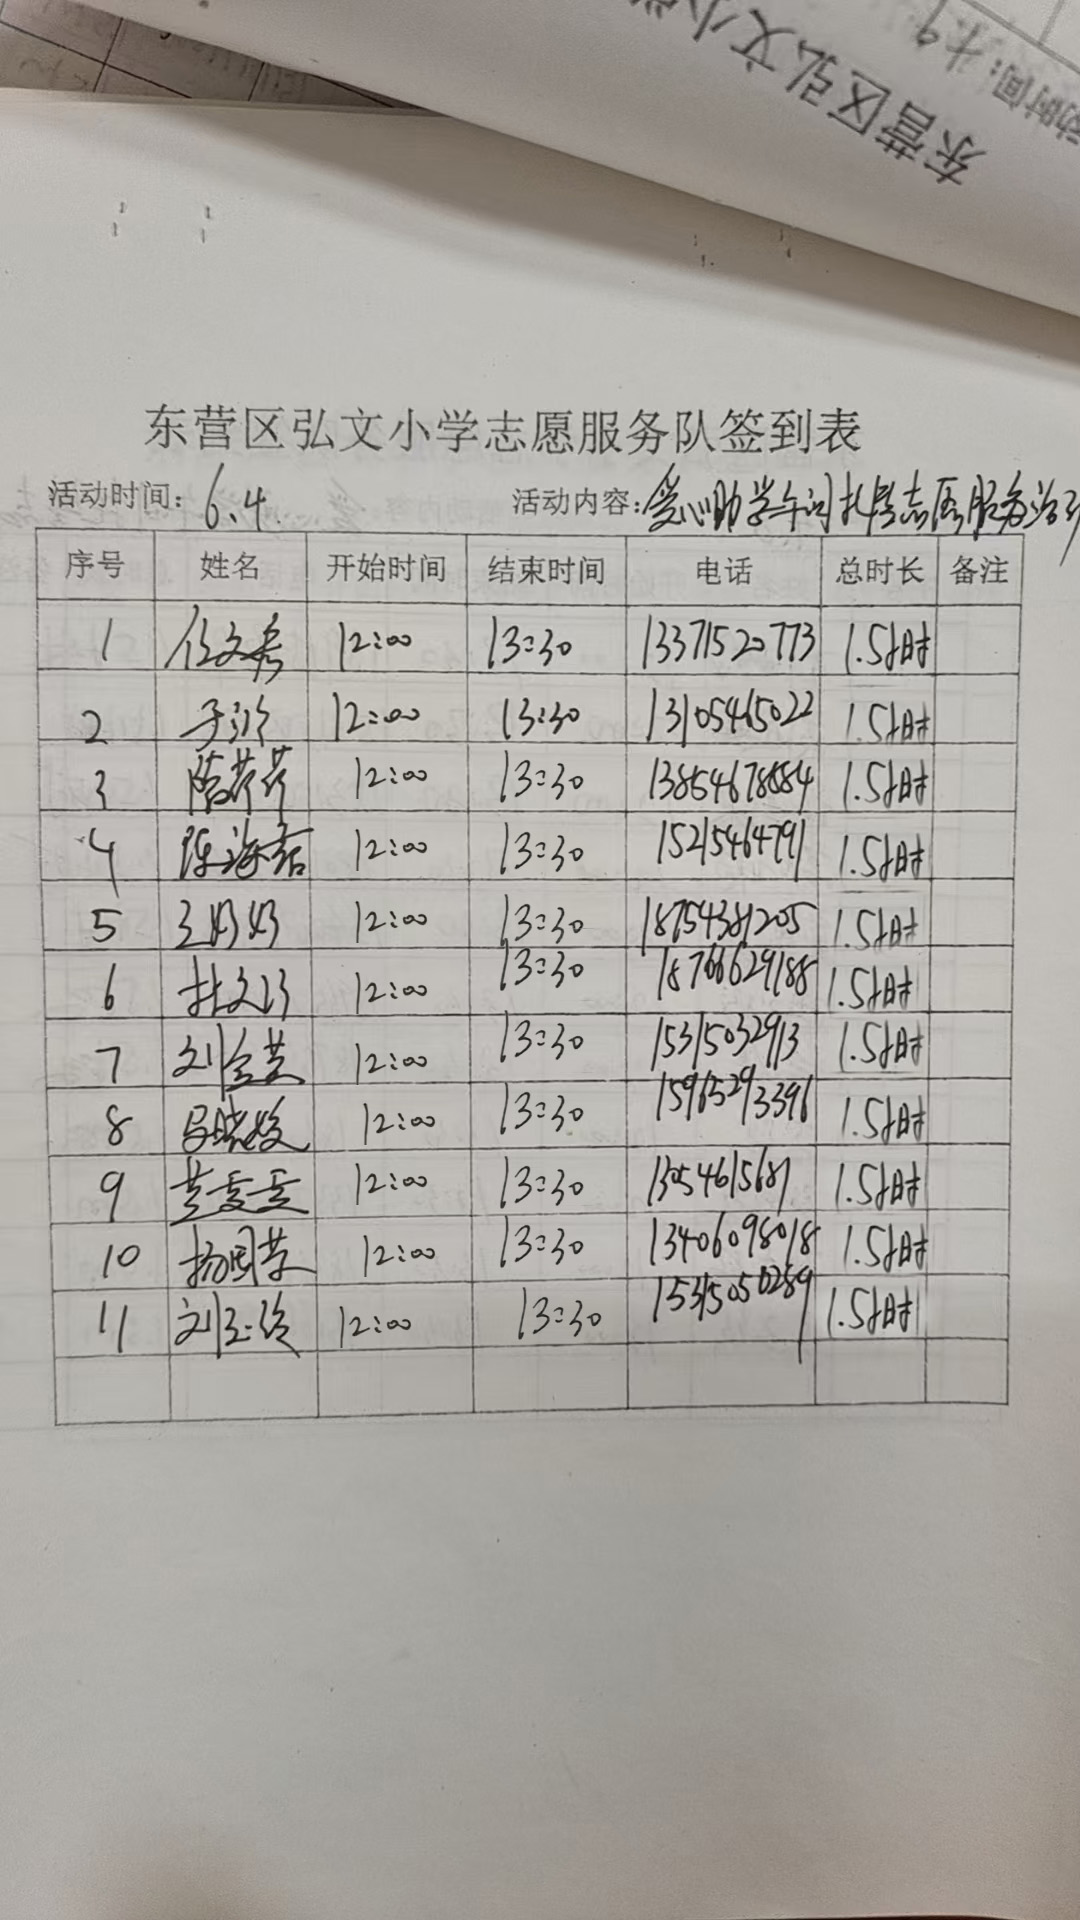 东营区弘文小
动时间:
东营区弘文小学志愿服务队签到表
活动时间: 6.4 活动内容: 爱心助学午间托管志愿服务活动
序号 姓名 开始时间 结束时间 电话 总时长 备注
1 任文秀 12:00 13:30 13371520773 1.5小时
2 于 12:00 13:30 13105465022 1.5小时
3 隋芹芹 12:00 13:30 13854678884 1.5小时
4 陈海 12:00 13:30 15215464791 1.5小时
5 王好好 12:00 13:30 18754381205 1.5小时
6 杜文 12:00 13:30 18766629188 1.5小时
7 刘金芝 12:00 13:30 15315032913 1.5小时
8 马晓 12:00 13:30 15965293396 1.5小时
9 黄雯雯 12:00 13:30 13054615681 1.5小时
10 杨国荣 12:00 13:30 13406098018 1.5小时
11 刘玉玲 12:00 13:30 15315050289 1.5小时